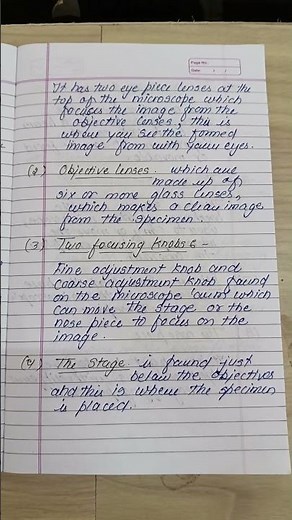 Page No.
Date
It has two eye piece lenses at the
top of the microscope which
focuses the image from the
objective lenses, this is
where you see the formed
image from with your eyes.
(2) Objective lenses. which are
made up of
six or more glass lenses,
which makes a clear image
from the specimen.
(3) Two focusing knobs :-
Fine adjustment knob and
coarse adjustment knob found
on the microscope arms which
can move the stage or the
nose piece to focus on the
image.
(4) The Stage is found just
below the objectives
and this is where the specimen
is placed.